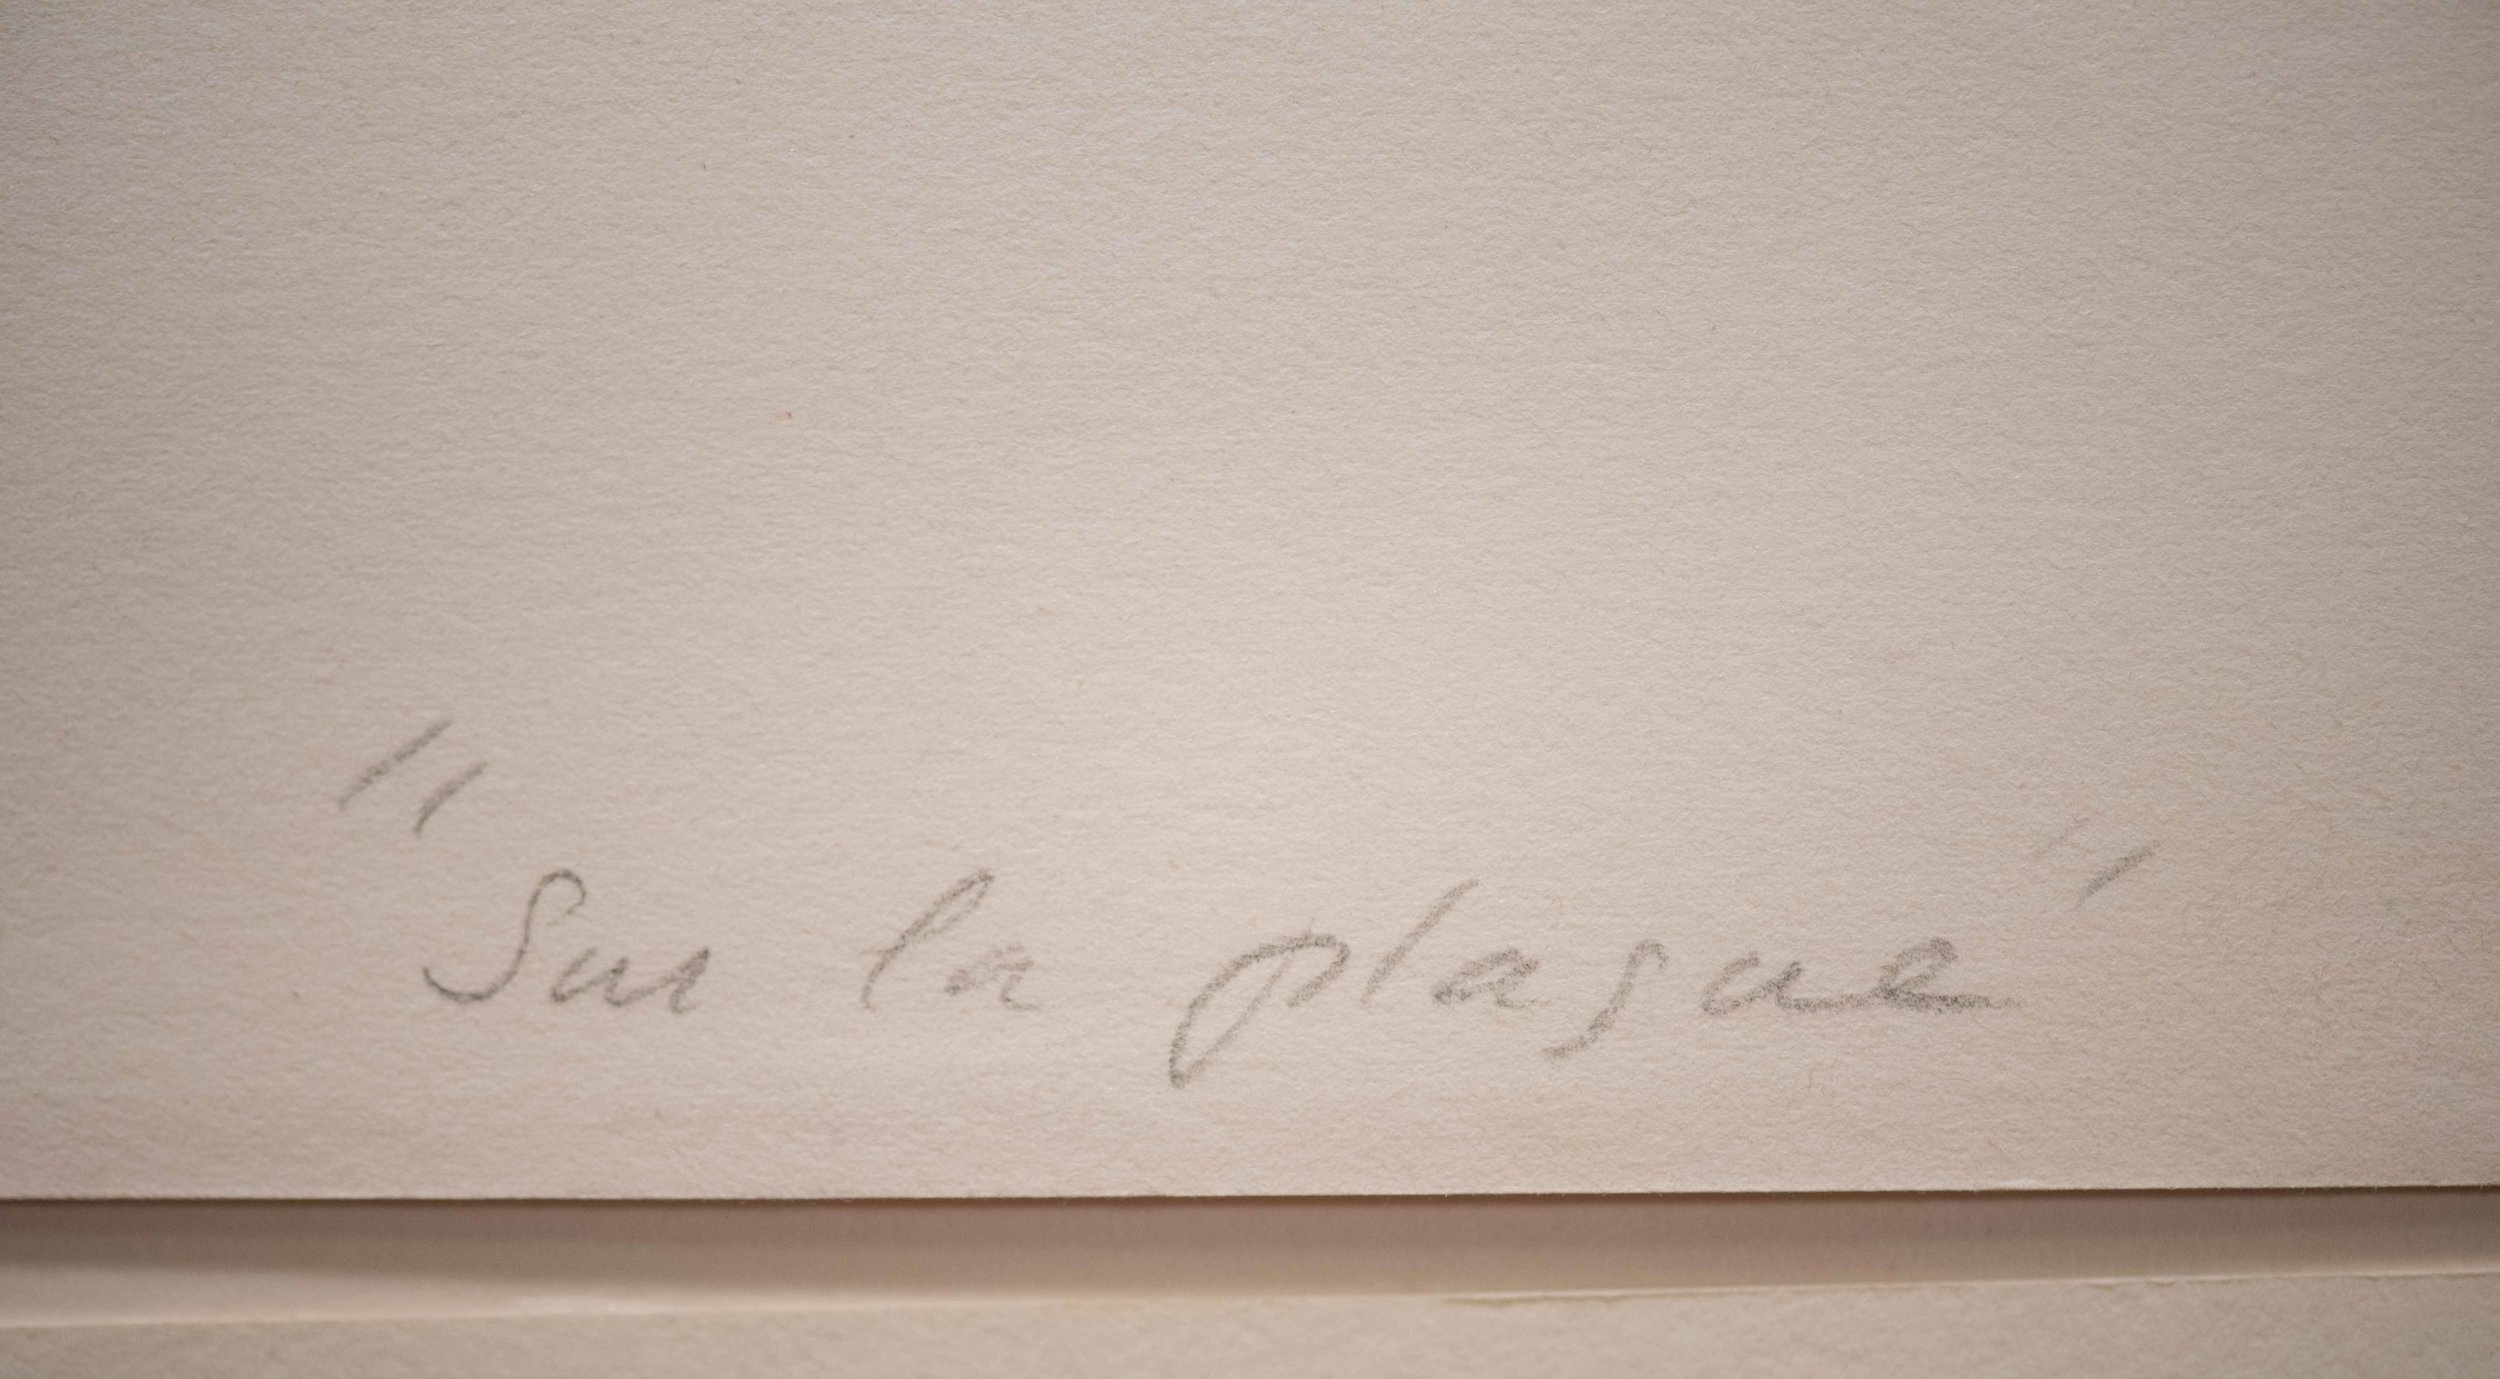 "Sur la plague"